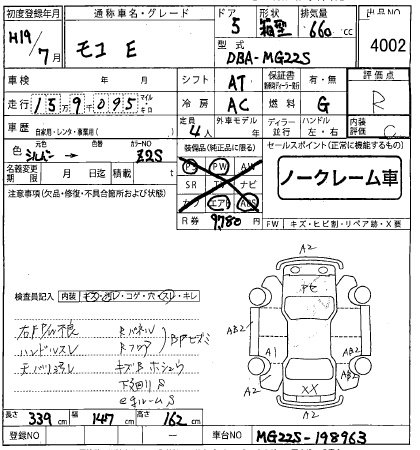 初度登録年月 通称車名・グレード ドア 形状 排気量 出品NO
H19/7月 モコ E 5 箱型 660cc 4002
型式 DBA-MG22S
車検 年 月 シフト AT 保証書 有・無 評価点
走行 15万9千095 マイル・キロ 冷房 AC 燃料 G R
車歴 自家用・レンタ・事業用( ) 定員 4人 外車モデル年 ディーラー・並行 ハンドル 左・右 内装評価 C
色 元色 シルバー 色替 カラーNO Z2S 装備品(純正品に限る) セールスポイント(正常に機能するもの)
名義変更期限 月 日迄 積載 t PS PW AW
注意事項(欠品・修復・不具合箇所および状態) SR TV ナビ ノークレーム車
カワ エアB ABS
R券 9780円 FW キズ・ヒビ割・リペア跡・X要
A2
検査員記入 内装 キズ・汚レ・コゲ・穴・スレ・キレ
右FドアA不良 Rパネル
ハンドルスレ Rフロア
キズB
下廻りS
AB2 A1 AB2 A2
XX
A2
長さ 339cm 幅 147cm 高さ 162cm
登録NO — 車台NO MG22S-198963